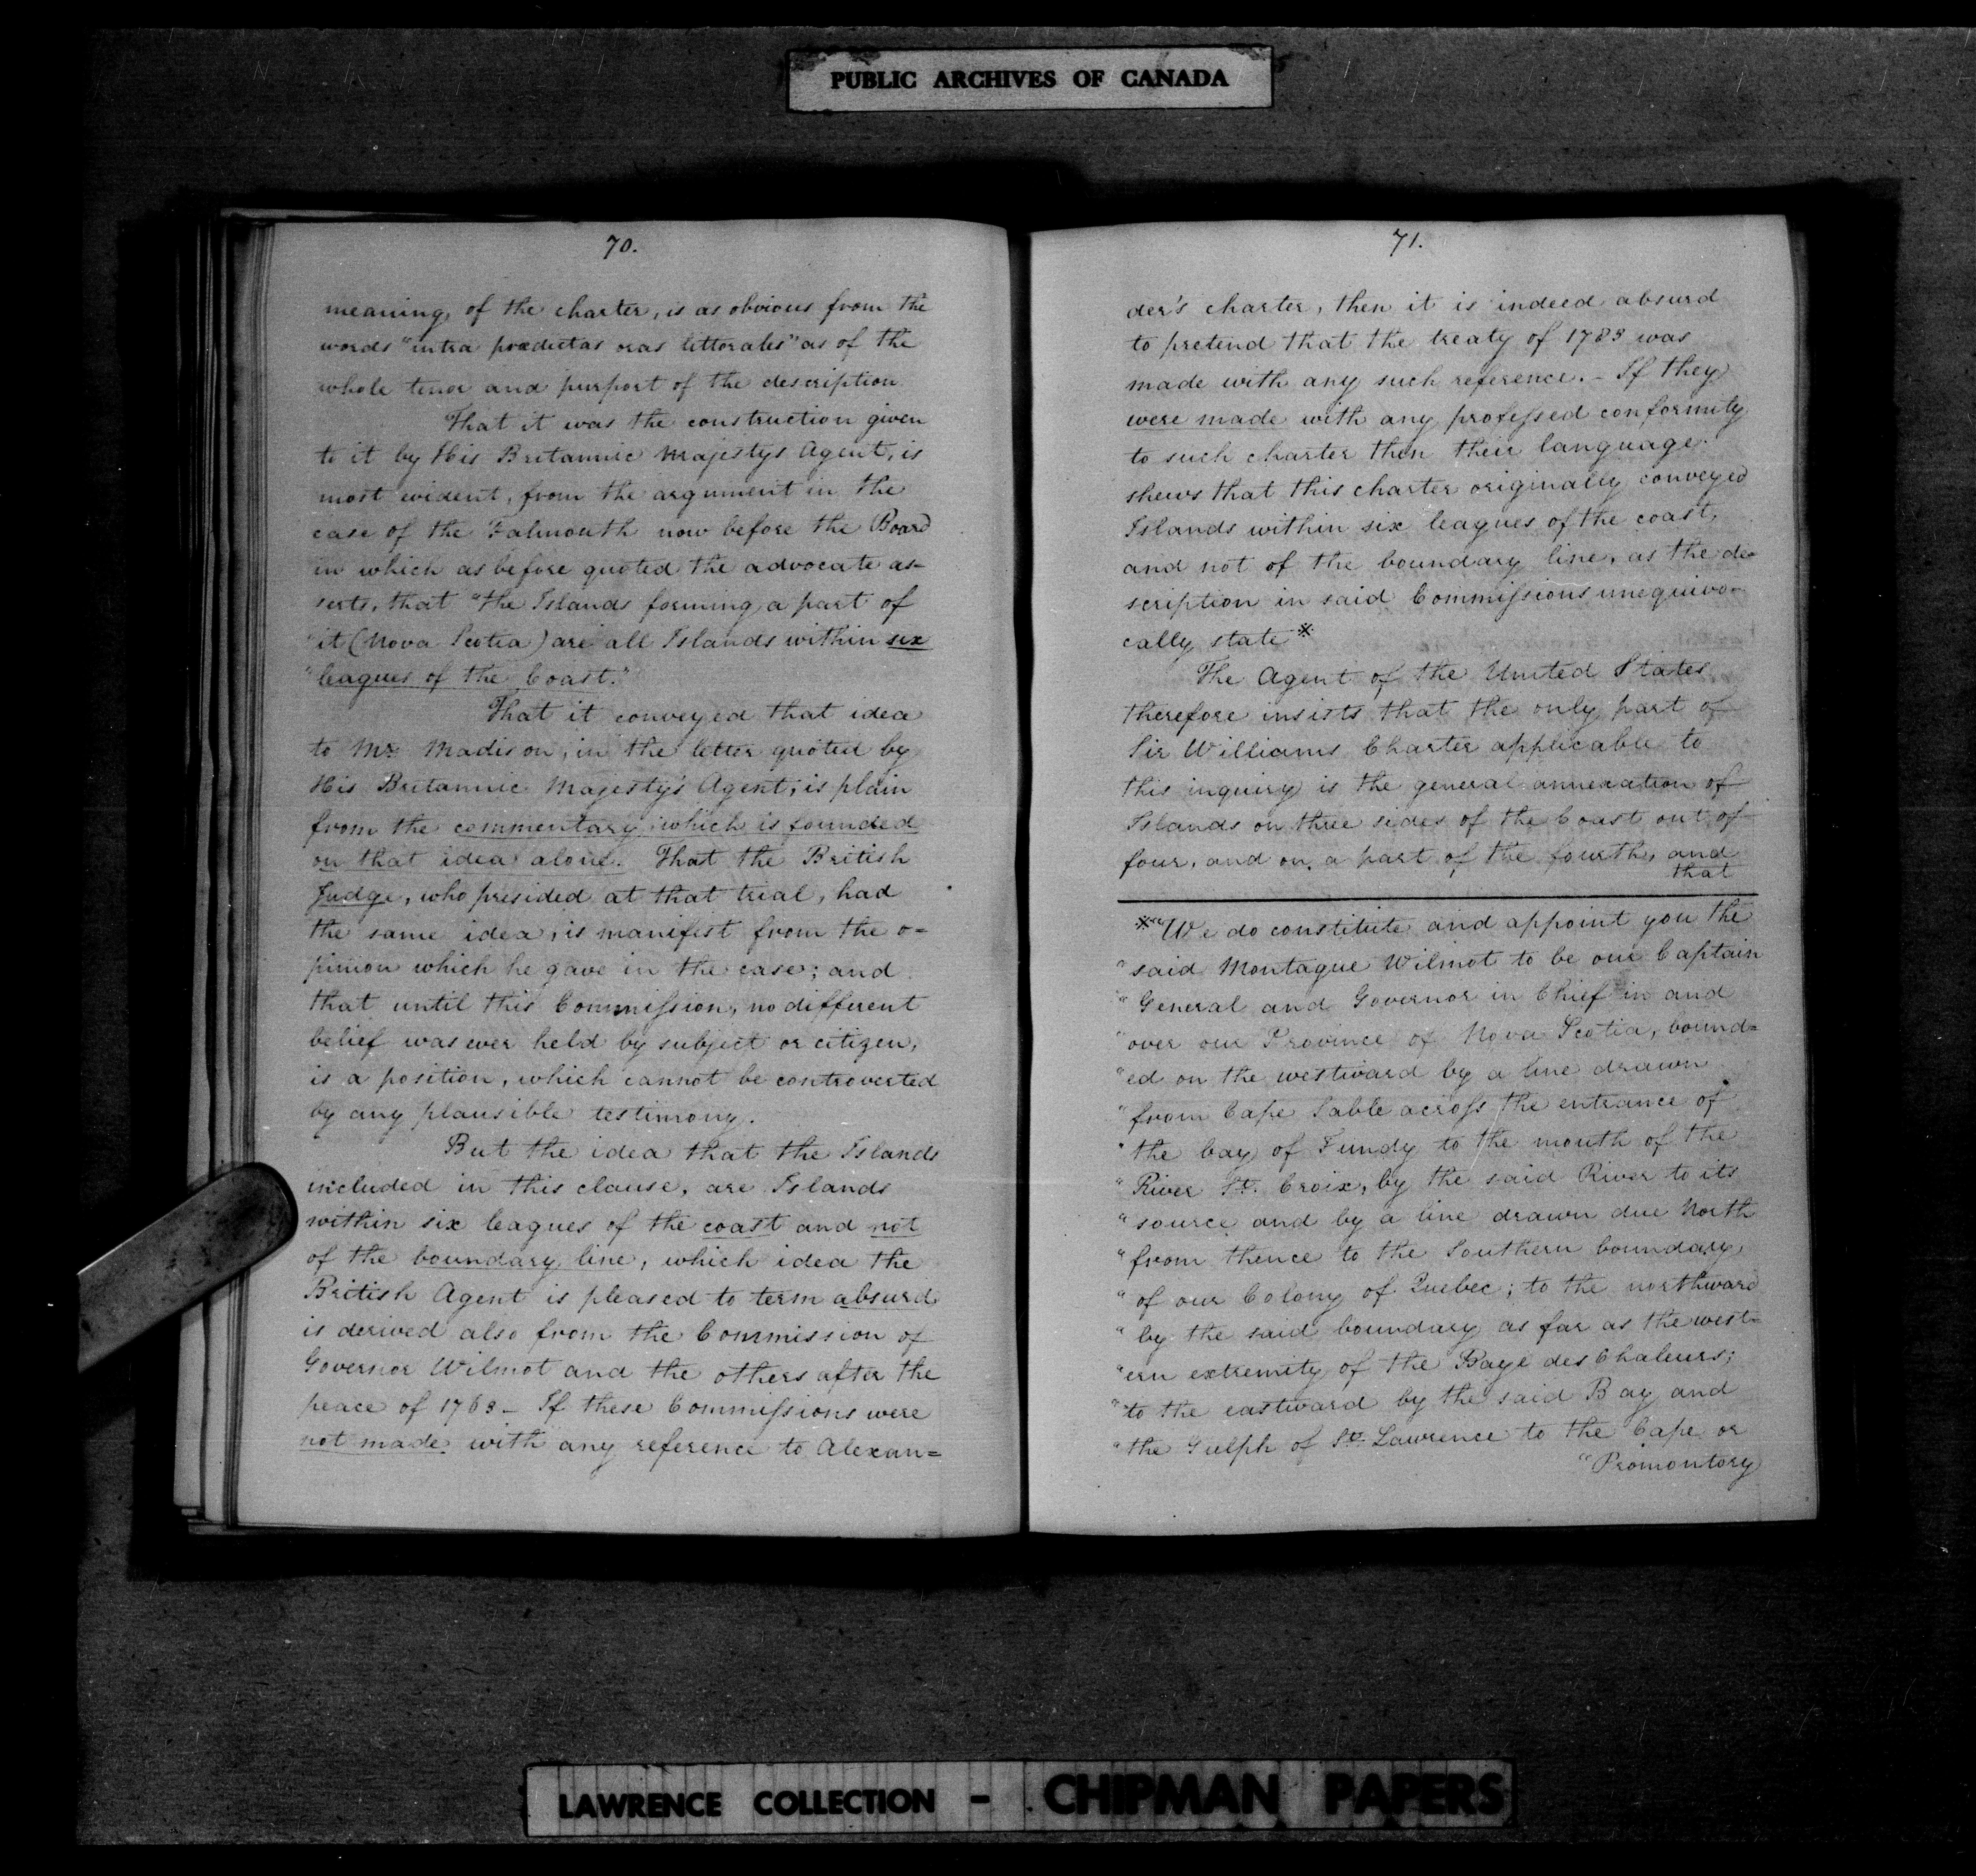 PUBLIC ARCHIVES OF CANADA
70.
meaning, of the charter, is as obvious from the
words "intra prædictas oras littorales" as of the
whole tenor and purport of the description.
That it was the construction given
to it by His Britannic Majestys Agent, is
most evident, from the argument in the
case of the Falmouth now before the Board
in which as before quoted the advocate as-
serts, that "the Islands forming a part of
"it (Nova Scotia) are all Islands within six
"leagues of the Coast."
That it conveyed that idea
to Mr. Madison, in the letter quoted by
His Britannic Majesty's Agent, is plain
from the commentary, which is founded
on that idea alone. That the British
Judge, who presided at that trial, had
the same idea, is manifest from the o=
pinion which he gave in the case; and
that until this Commission, no different
belief was ever held by subject or citizen,
is a position, which cannot be controverted
by any plausible testimony.
But the idea that the Islands
included in this clause, are Islands
within six leagues of the coast and not
of the boundary line, which idea the
British Agent is pleased to term absurd
is derived also from the Commission of
Governor Wilmot and the others after the
peace of 1763 - If these Commissions were
not made with any reference to Alexan=
71.
der's charter, then it is indeed absurd
to pretend that the treaty of 1783 was
made with any such reference. - If they
were made with any professed conformity
to such charter then their language
shews that this charter originally conveyed
Islands within six leagues of the coast,
and not of the boundary line, as the de-
scription in said Commissions unequivo-
cally state ※
The Agent of the United States
therefore insists that the only part of
Sir Williams Charter applicable to
this inquiry is the general annexation of
Islands on three sides of the Coast out of
four, and on a part of the fourth, and
that
※ "We do constitute and appoint you the
"said Montague Wilmot to be our Captain
"General and Governor in Chief in and
"over our Province of Nova Scotia, bound=
"ed on the westward by a line drawn
"from Cape Sable across the entrance of
"the bay of Fundy to the mouth of the
"River St. Croix, by the said River to its
"source and by a line drawn due North
"from thence to the Southern boundary
"of our Colony of Quebec; to the northward
"by the said boundary as far as the west=
"ern extremity of the Baye des Chaleurs;
"to the eastward by the said Bay and
"the Gulph of St. Lawrence to the Cape or
"Promontory
LAWRENCE COLLECTION - CHIPMAN PAPERS